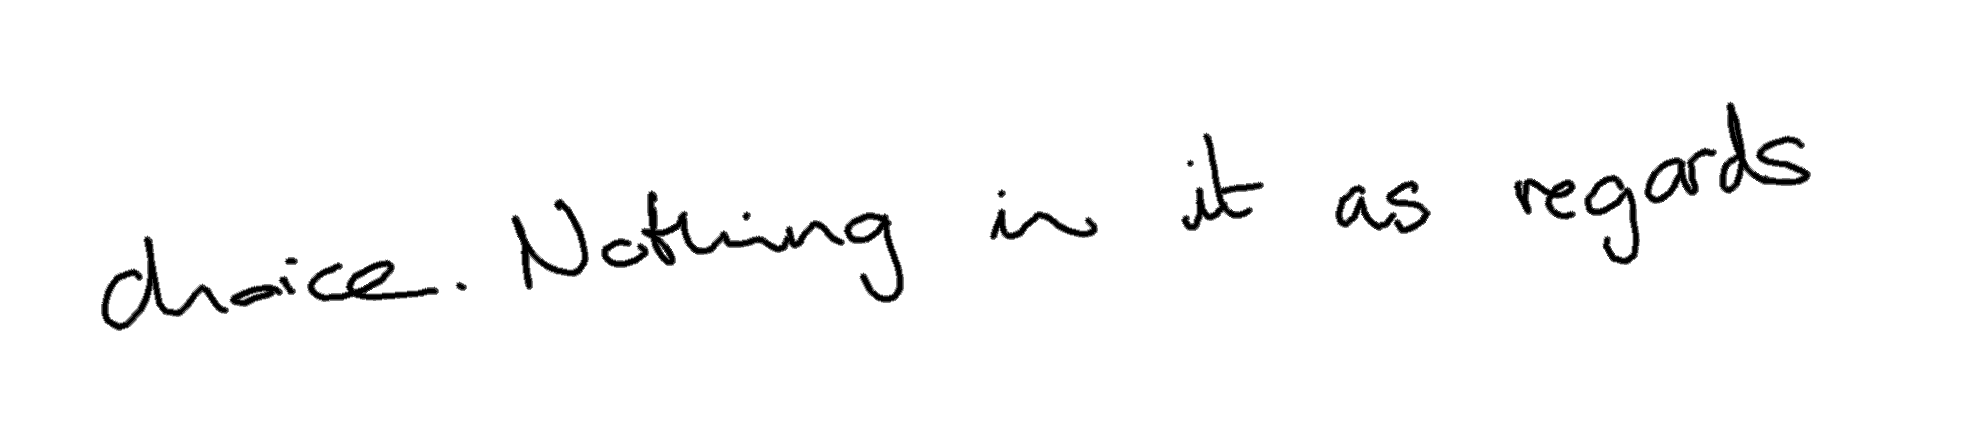 choice. Nothing in it as regards